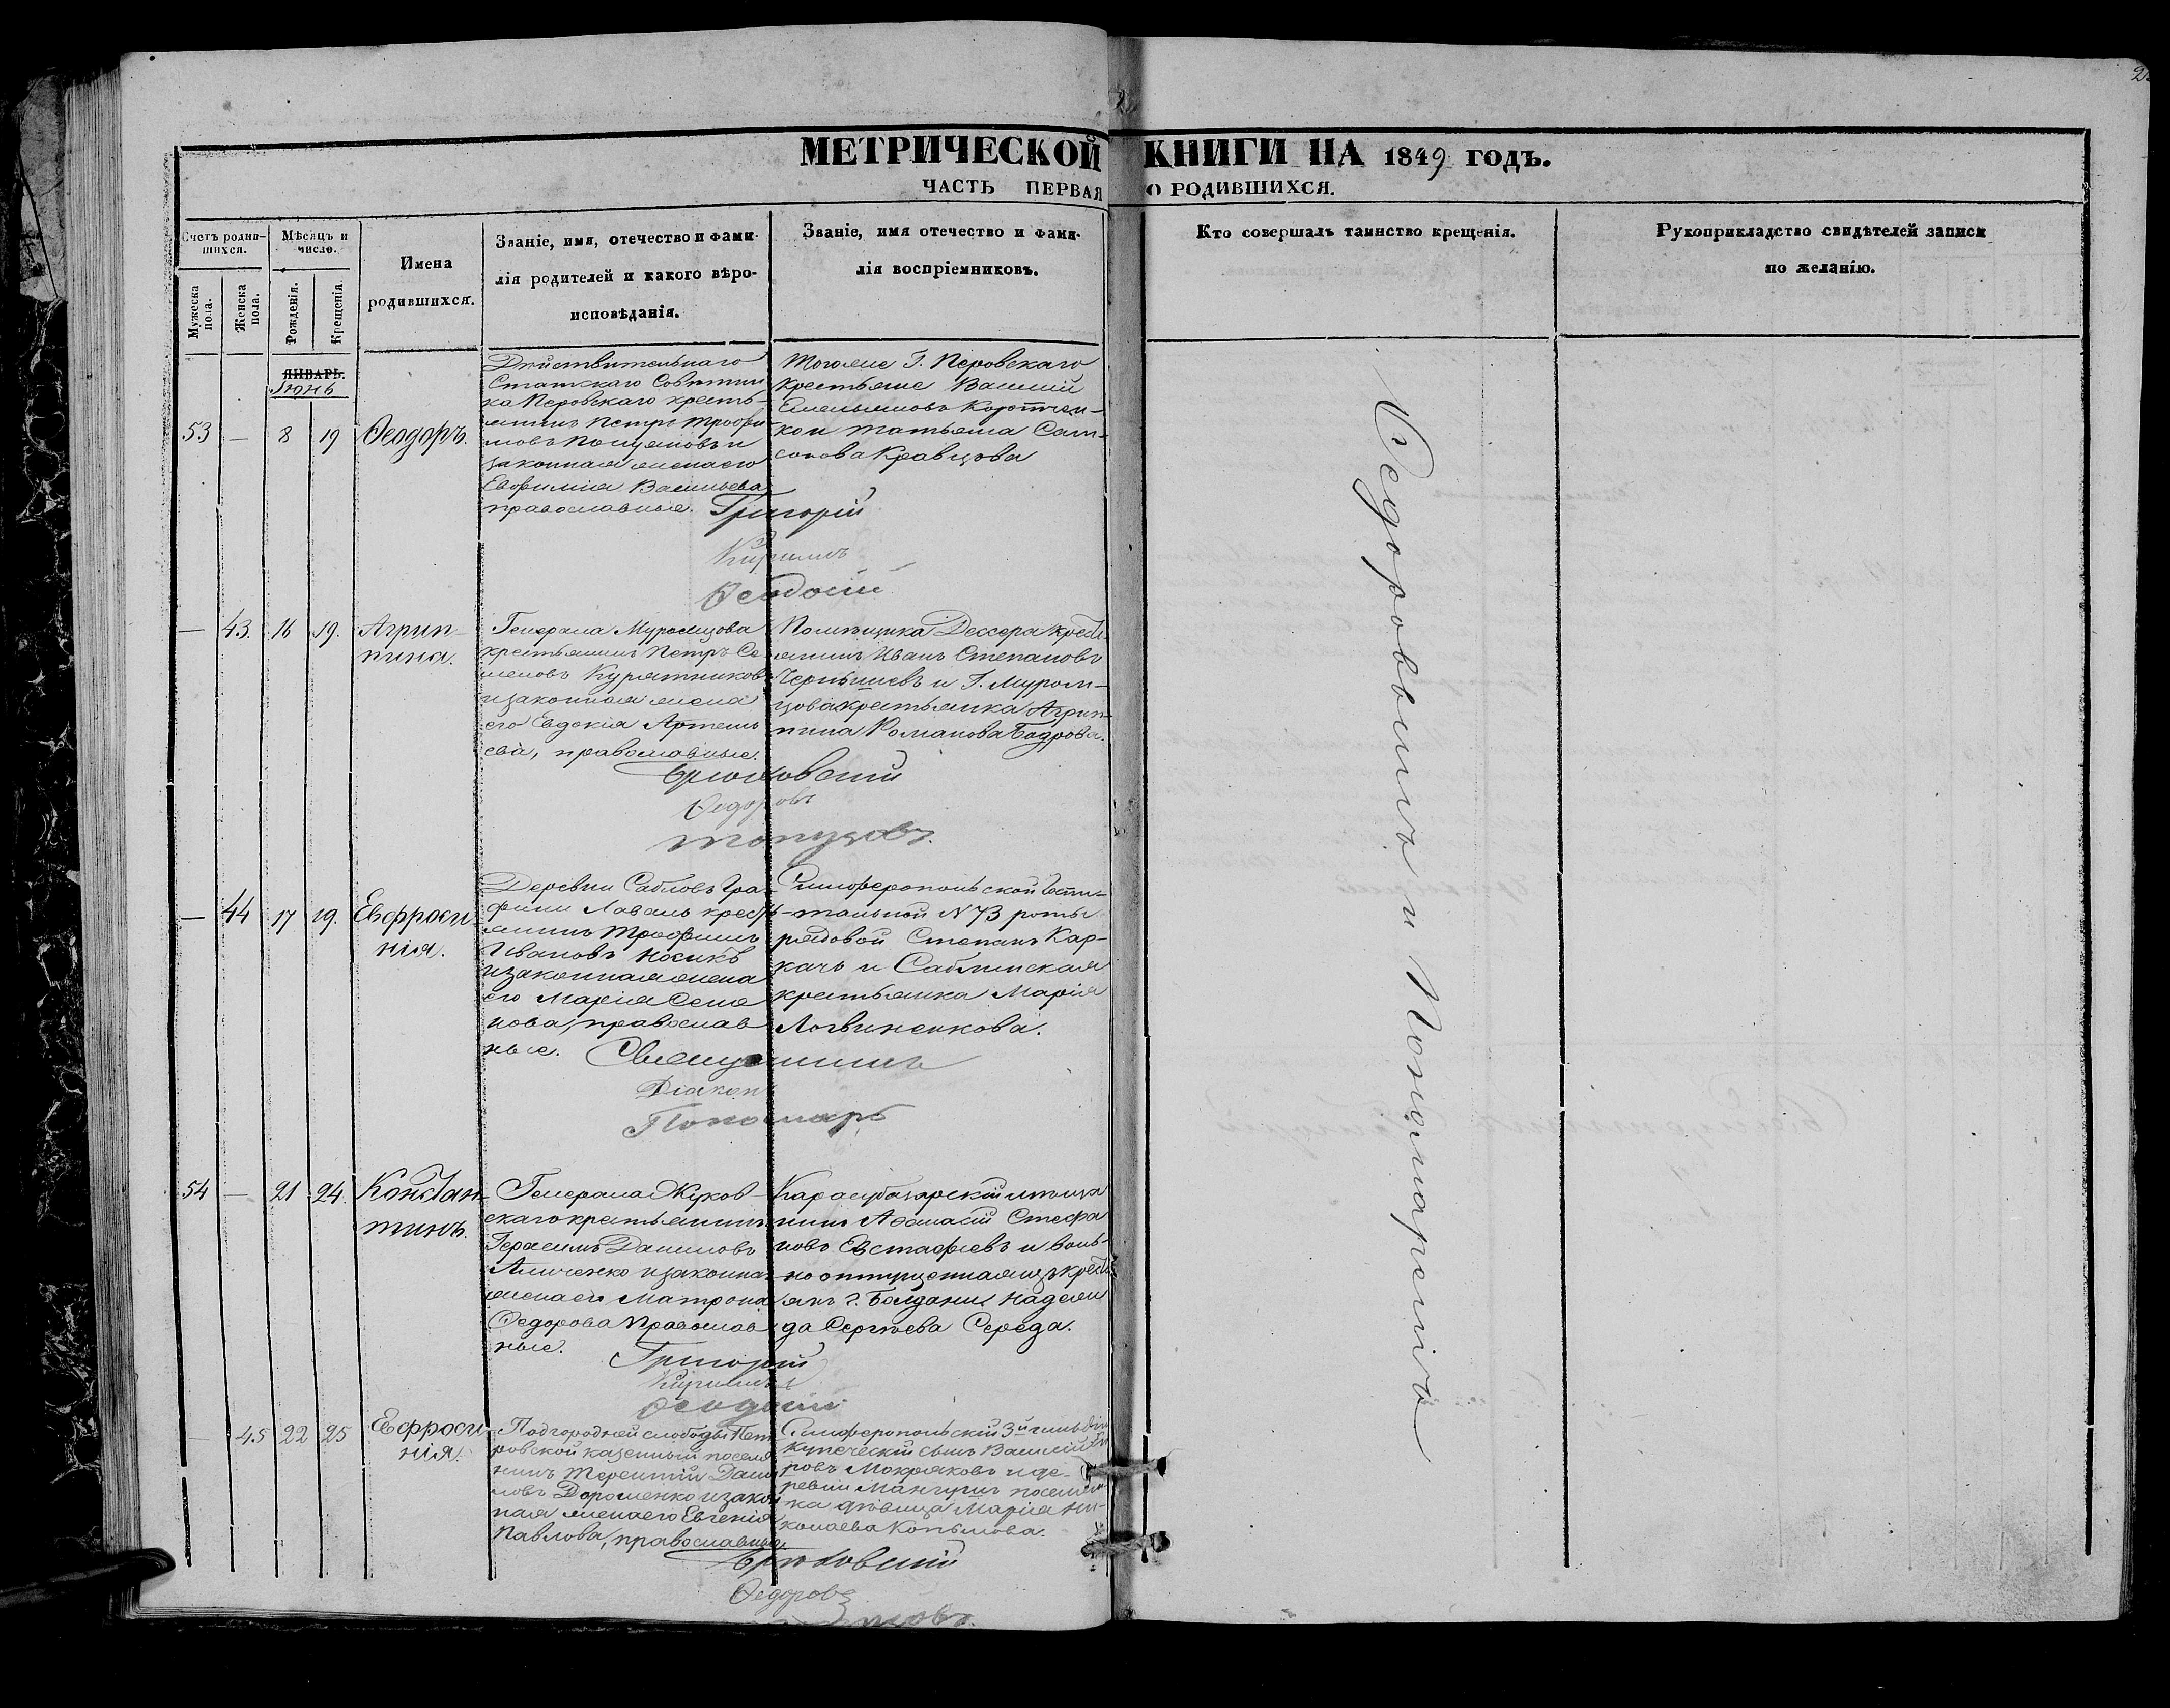 МЕТРИЧЕСКОЙ КНИГИ НА 1849 ГОДЪ.
ЧАСТЬ ПЕРВАЯ О РОДИВШИХСЯ.
Счетъ родив-
шихся.
Мужеска пола.
Женска пола.
Мѣсяцъ и
число.
Рожденія.
Крещенія.
Имена
родившихся.
Званіе, имя, отечество и фами-
лія родителей и какого вѣро-
исповѣданія.
Званіе, имя отечество и фами-
лія воспріемниковъ.
Кто совершалъ таинство крещенія.
Рукоприкладство свидѣтелей записи
по желанію.
ЯНВАРЬ.
Іюнь
53 — 8 19 Ѳеодоръ.
Дѣйствительнаго
Статскаго Совѣтни
ка Перовскаго кресть-
янинъ Петръ Трофи
мовъ и
законная жена его
Евфимія Васильева
православные.
Тогоже Г. Перовскаго
крестьяне Василій
Емельяновъ
ко и Татьяна Сам-
сонова Кравцова
Григорій
Кириллъ
Ѳеодосій
— 43. 16 19. Агрип-
пина.
Генерала Муромцова
крестьянинъ Петръ Се
меновъ Курятников
и законная жена
его Евдокія Артемь
ева, православные.
Помѣщика Дессера крест
янинъ Иванъ Степановъ
Чернышевъ и Г. Муром-
цова крестьянка Агрип-
пина Романова Бодрова.
Федоровъ
— 44 17 19. Евфроси
нія.
Деревни Сабловъ Гра-
фини Лаваль кресть
янинъ Трофимъ
Ивановъ Носикъ
и законная жена
его Марія Семе
нова, православ
ные.
Симферопольской Госпи-
тальной № 73 роты
рядовой Степанъ Кар-
качъ и Саблинская
крестьянка Марія
Логвиненкова.
Священникъ
Діаконъ
Пономарь
54 — 21 24. Констан-
тинъ.
Генерала Жуков-
скаго крестьянинъ
Герасимъ Даниловъ
и законна
жена его Матрона
Ѳедорова Православ
ные.
Карасубазарскій мѣща
нинъ Афанасій Стефа
новъ Евстафіевъ и воль-
но отпущенная изъ крест
янъ г. Надеж
да Сергѣева Середа.
Григорій
Кириллъ
Ѳеодосій
— 45 22 25 Ефроси
нія.
Подгородней слободы Пет
ровской казенный поселя
нинъ Терентій Дани
ловъ Дорошенко и закон
ная жена его Евгенія
Павлова, православные.
Симферопольскій 3й гильдіи
купеческій сынъ Василій
ровъ Мокряковъ и де-
ревни Мангушъ поселян
ка дѣвица Марія Ни-
колаева Копылова.
Федоровъ
Федоровымъ и Пономаремъ